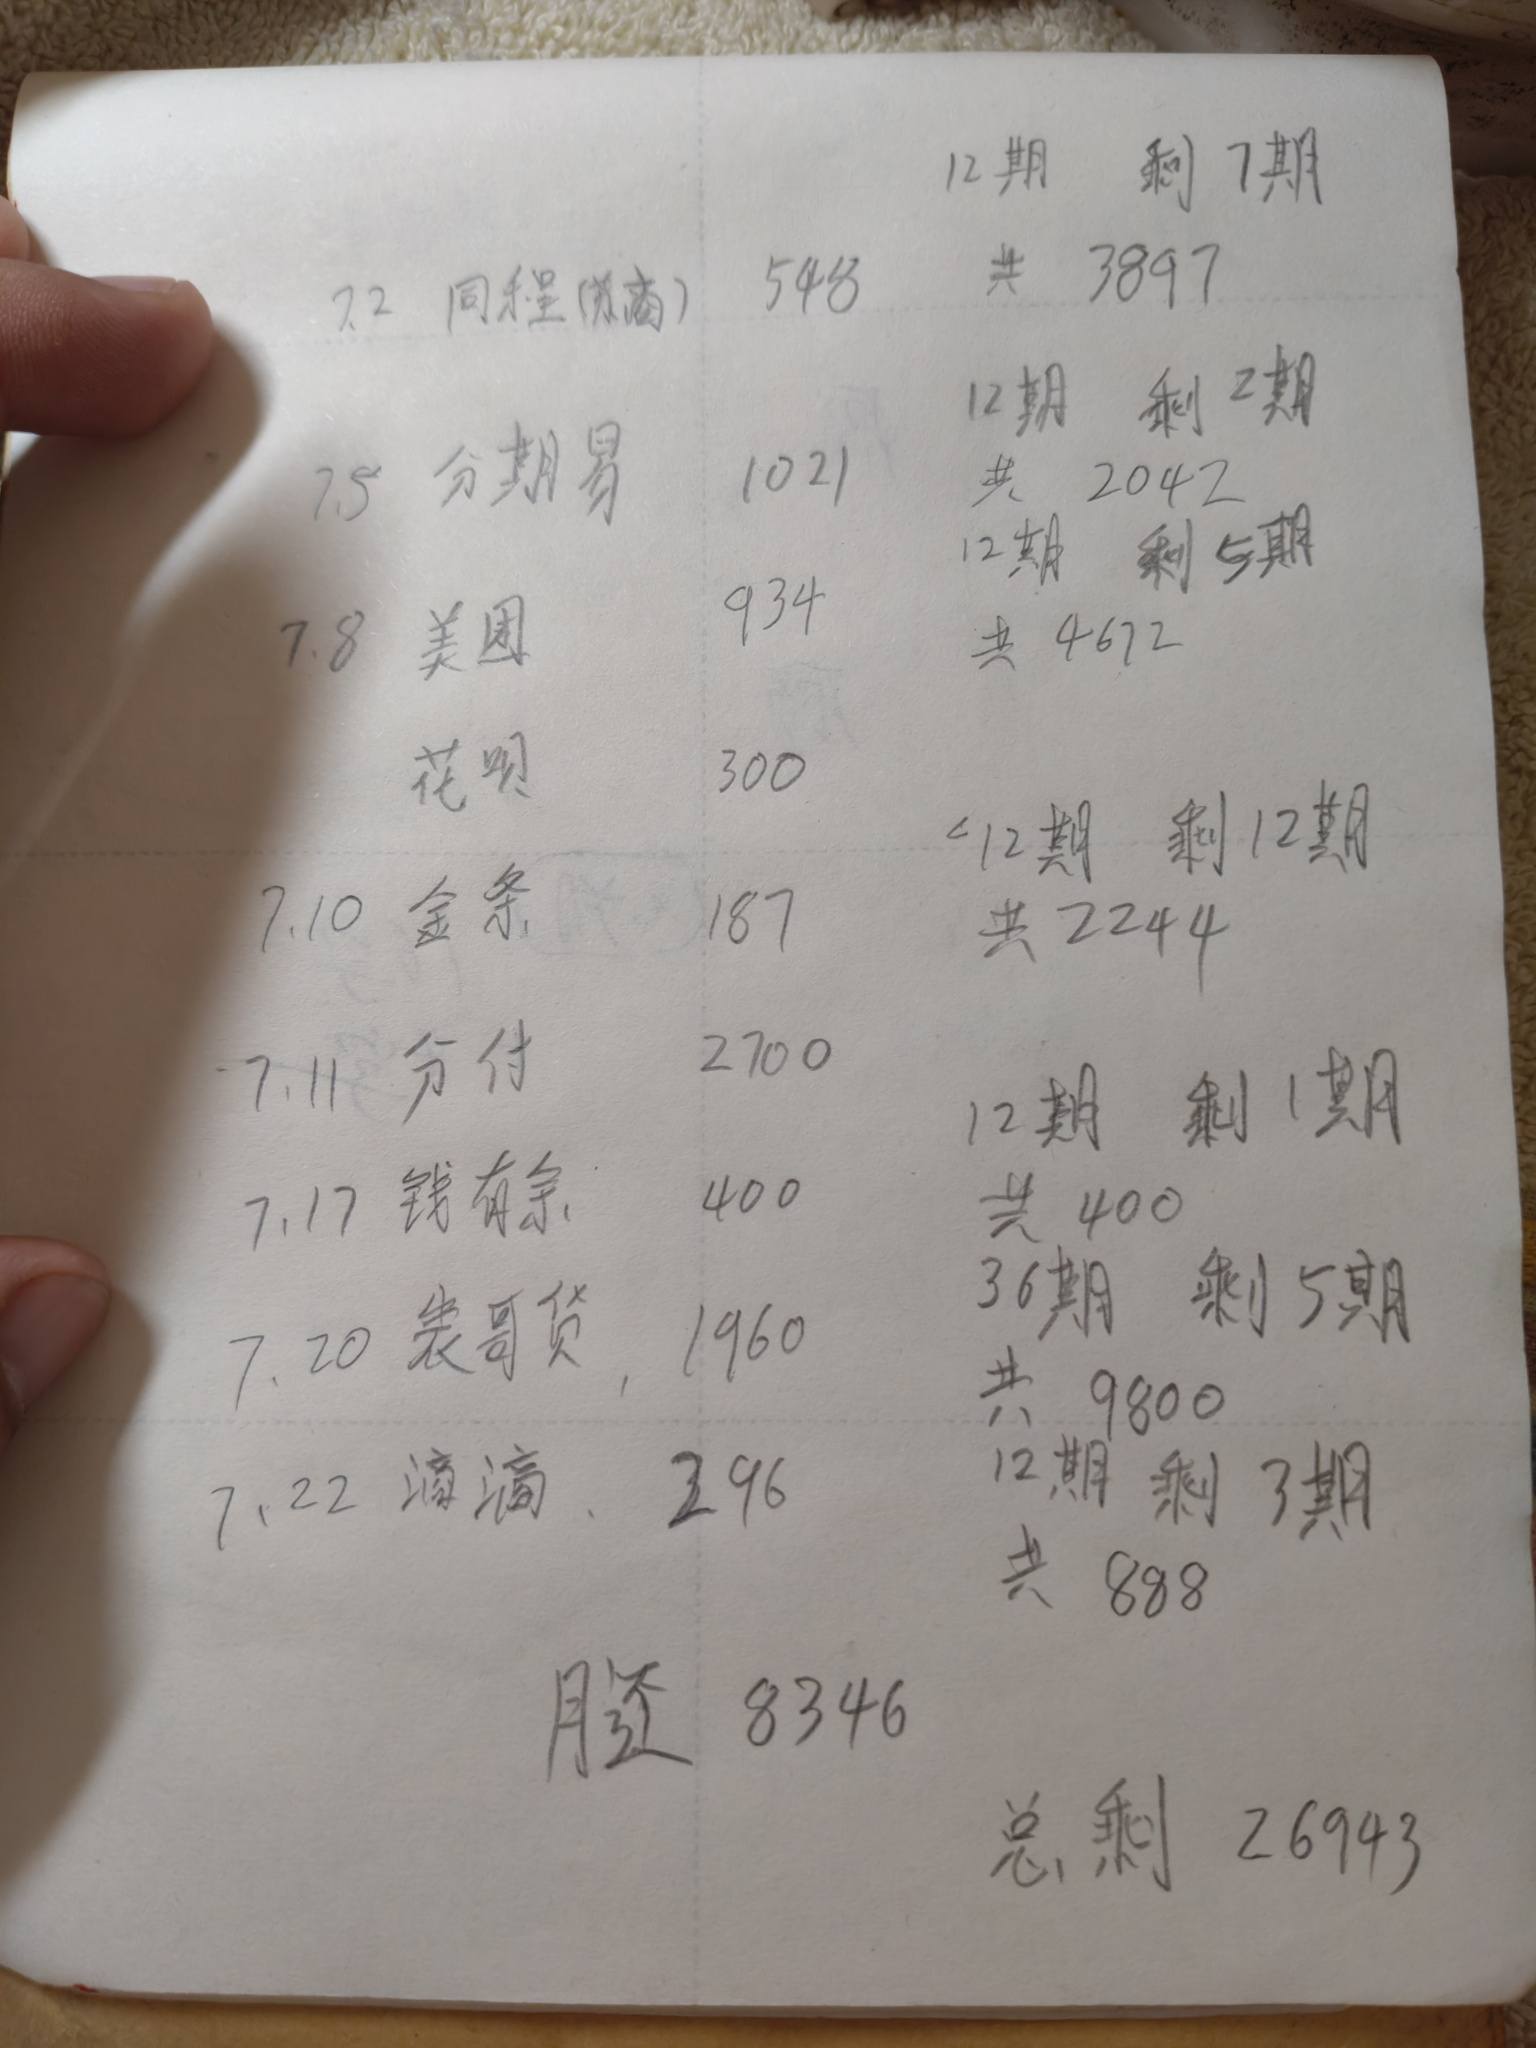 12期 剩7期
7.2 同程(苏商) 548 共 3897
12期 剩2期
7.5 分期易 1021 共 2042
12期 剩5期
7.8 美团 934 共 4672
花呗 300
12期 剩12期
7.10 金条 187 共 2244
7.11 分付 2700
12期 剩1期
7.17 钱有余 400 共 400
36期 剩5期
7.20 表哥贷 1960 共 9800
12期 剩3期
7.22 滴滴 296 共 888
月还 8346
总剩 26943